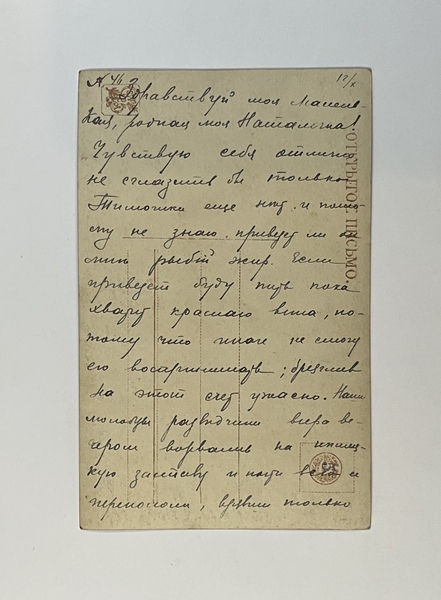 12/X
Здравствуй моя Малень-
кая, родная моя Наталочка!
Чувствую себя отлично
не сглазить бы только
Тимошки еще нет. и пото-
му не знаю. привезет ли он
мне рыбий жир. Если
привезет буду пить пока
хватит красного вина, по-
тому что иначе не смогу
его воспринимать; брезглив
на этот счет ужасно. Наши
молодцы разведчики вчера ве-
чером ворвались на
кую заставу и почти всех
перекололи, взяли только
ОТКРЫТОЕ ПИСЬМО